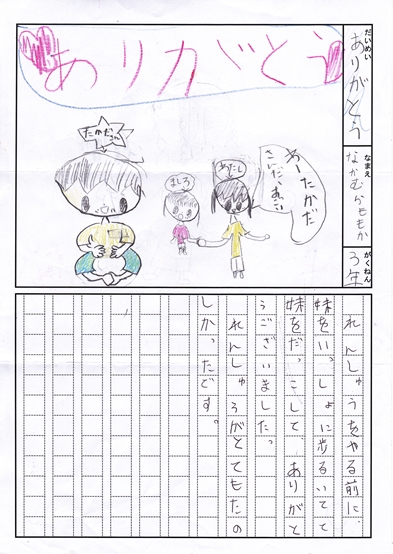 だいめい
ありがとう
なまえ
なかむらももか
がくねん
3年
ありがとう
たかださん
ましろ
わたし
あーたかだ
さんだ、
れんしゅうをやる前に、
妹をいっしょに歩るいてて
妹をだっこして、ありがと
うございました。
れんしゅうがとてもたの
しかったです。